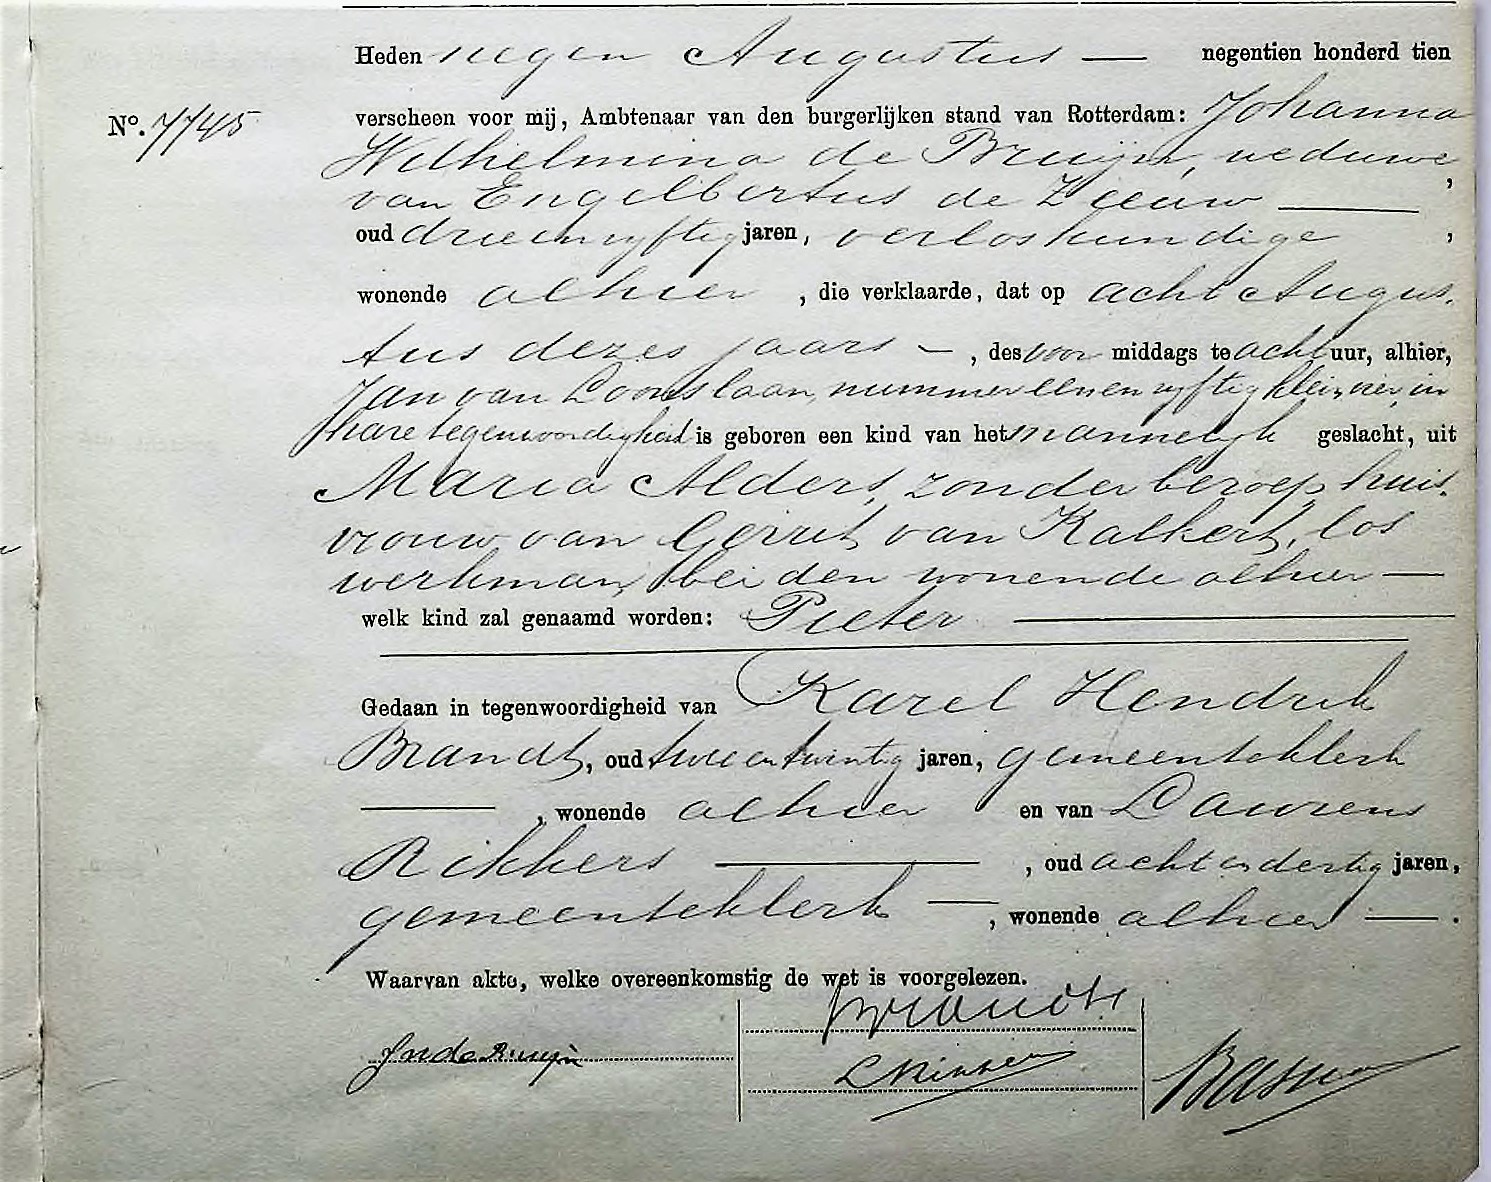 Heden negen Augustus — negentien honderd tien
No. 7745
verscheen voor mij, Ambtenaar van den burgerlijken stand van Rotterdam: Johanna
Wilhelmina de Bruijn, weduwe
van Engelbertus de Zeeuw — ,
oud drieenvyftig jaren, verloskundige ,
wonende alhier , die verklaarde, dat op acht Augus-
tus dezes jaars — , des voor middags te acht uur, alhier,
Jan van Loonslaan, nummer eenenvyftig klein vier, in
hare tegenwoordigheid is geboren een kind van het mannelyk geslacht, uit
Maria Alders, zonder beroep, huis-
vrouw van Gerrit van Kalkert, los
werkman, beiden wonende alhier —
welk kind zal genaamd worden: Pieter —
Gedaan in tegenwoordigheid van Karel Hendrik
Brandt, oud tweeentwintig jaren, gemeenteklerk
— , wonende alhier en van Laurens
Rikkers — , oud achtendertig jaren,
gemeenteklerk — , wonende alhier — .
Waarvan akte, welke overeenkomstig de wet is voorgelezen.
Brandt
JW de Bruijn
L Rikkers